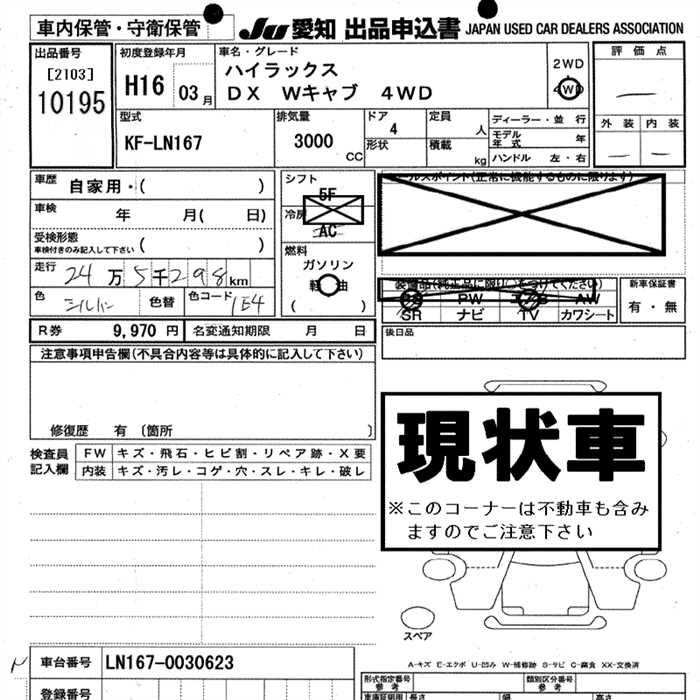 車内保管・守衛保管
JU 愛知 出品申込書 JAPAN USED CAR DEALERS ASSOCIATION
出品番号
[2103]
10195
初度登録年月
H16 03月
車名・グレード
ハイラックス
DX Wキャブ 4WD
2WD
4WD
評価点
外装 内装
型式
KF-LN167
排気量
3000 CC
ドア
4
形状
定員
人
積載
kg
ディーラー・並行
モデル年式 年
ハンドル 左・右
車歴 自家用・( )
車検 年 月( 日)
受検形態
車検付きのみ記入して下さい ( )
走行 24万5千298km
色 シルバー 色替 色コード 1E4
シフト
5F
冷房
AC
燃料
ガソリン
軽油
( )
セールスポイント(正常に機能するものに限ります)
装備品(純正品に限り○をつけてください)
PS PW エアB AW
SR ナビ TV カワシート
新車保証書
有・無
後日品
R券 9,970 円 名変通知期限 月 日
注意事項申告欄(不具合内容等は具体的に記入して下さい)
修復歴 有 〔箇所 〕
検査員
記入欄
FW キズ・飛石・ヒビ割・リペア跡・X要
内装 キズ・汚レ・コゲ・穴・スレ・キレ・破レ
現状車
※このコーナーは不動車も含み
ますのでご注意下さい
スペア
A-キズ E-エクボ U-凹み W-補修跡 S-サビ C-腐食 XX-交換済
車台番号 LN167-0030623
登録番号
形式指定番号
参考
類別区分番号
参考
長さ 幅 高さ